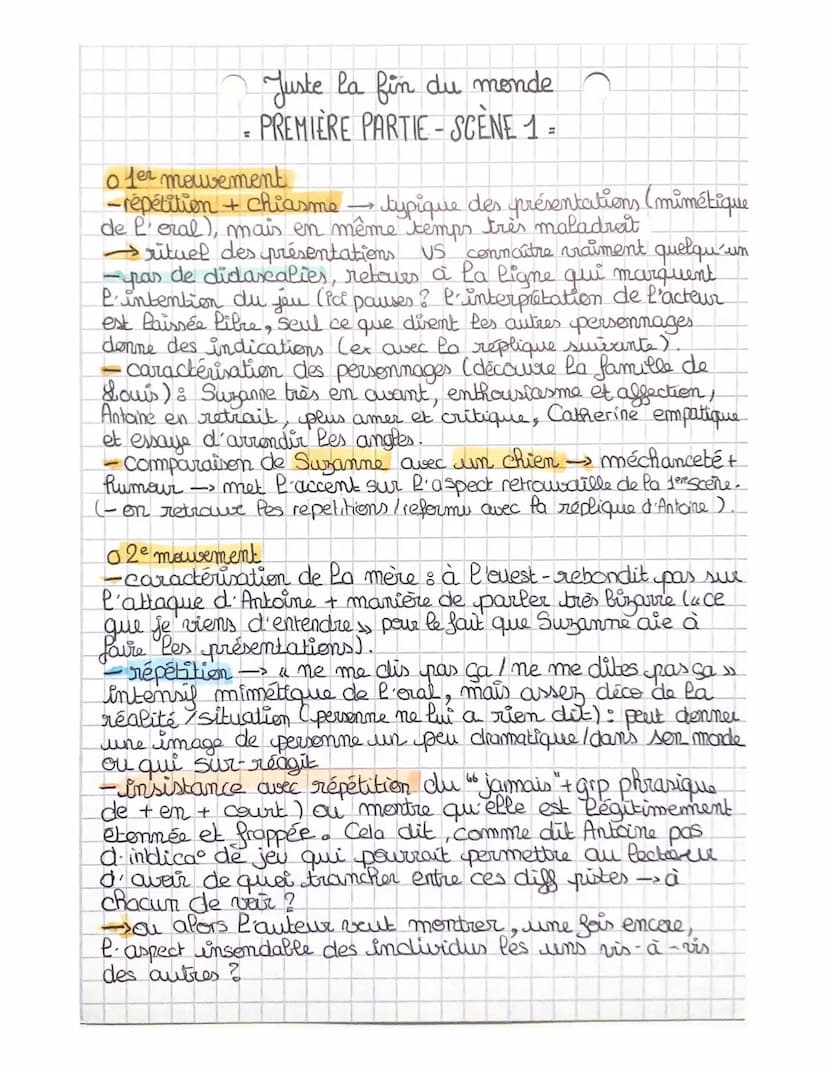 Juste la fin du monde
= PREMIÈRE PARTIE - SCÈNE 1 =
o 1er mouvement
- répétition + chiasme → typique des présentations (mimétique
de l'oral), mais en même temps très maladroit
→ rituel des présentations VS connaître vraiment quelqu'un
- pas de didascalies, retours à la ligne qui marquent
l'intention du jeu (ici pauses ? l'interprétation de l'acteur
est laissée libre, seul ce que disent les autres personnages
donne des indications (ex avec la réplique suivante).
- caractérisation des personnages (découvre la famille de
Louis) : Suzanne très en avant, enthousiasme et affection,
Antoine en retrait, plus amer et critique, Catherine empatique
et essaye d'arrondir les angles.
- Comparaison de Suzanne avec un chien → méchanceté +
humour → met l'accent sur l'aspect retrouvaille de la 1ère scène.
(- on retrouve les répétitions / reformu avec la réplique d'Antoine).
o 2e mouvement
- caractérisation de la mère : à l'ouest - rebondit pas sur
l'attaque d'Antoine + manière de parler très bizarre («ce
que je viens d'entendre» pour le fait que Suzanne aie à
faire les présentations).
- répétition → « ne me dis pas ça / ne me dites pas ça »
intensif mimétique de l'oral, mais assez déco de la
réalité / situation (personne ne lui a rien dit) : peut donner
une image de personne un peu dramatique / dans son monde
ou qui sur-réagit
- insistance avec répétition du "jamais" + grp phrasique
de + en + court) ou montre qu'elle est légitimement
étonnée et frappée. Cela dit, comme dit Antoine pas
d'indica° de jeu qui pourrait permettre au lecteur
d'avoir de quoi trancher entre ces diff pistes → à
chacun de voir ?
→ ou alors l'auteur veut montrer, une fois encore,
l'aspect insondable des individus les uns vis-à-vis
des autres ?